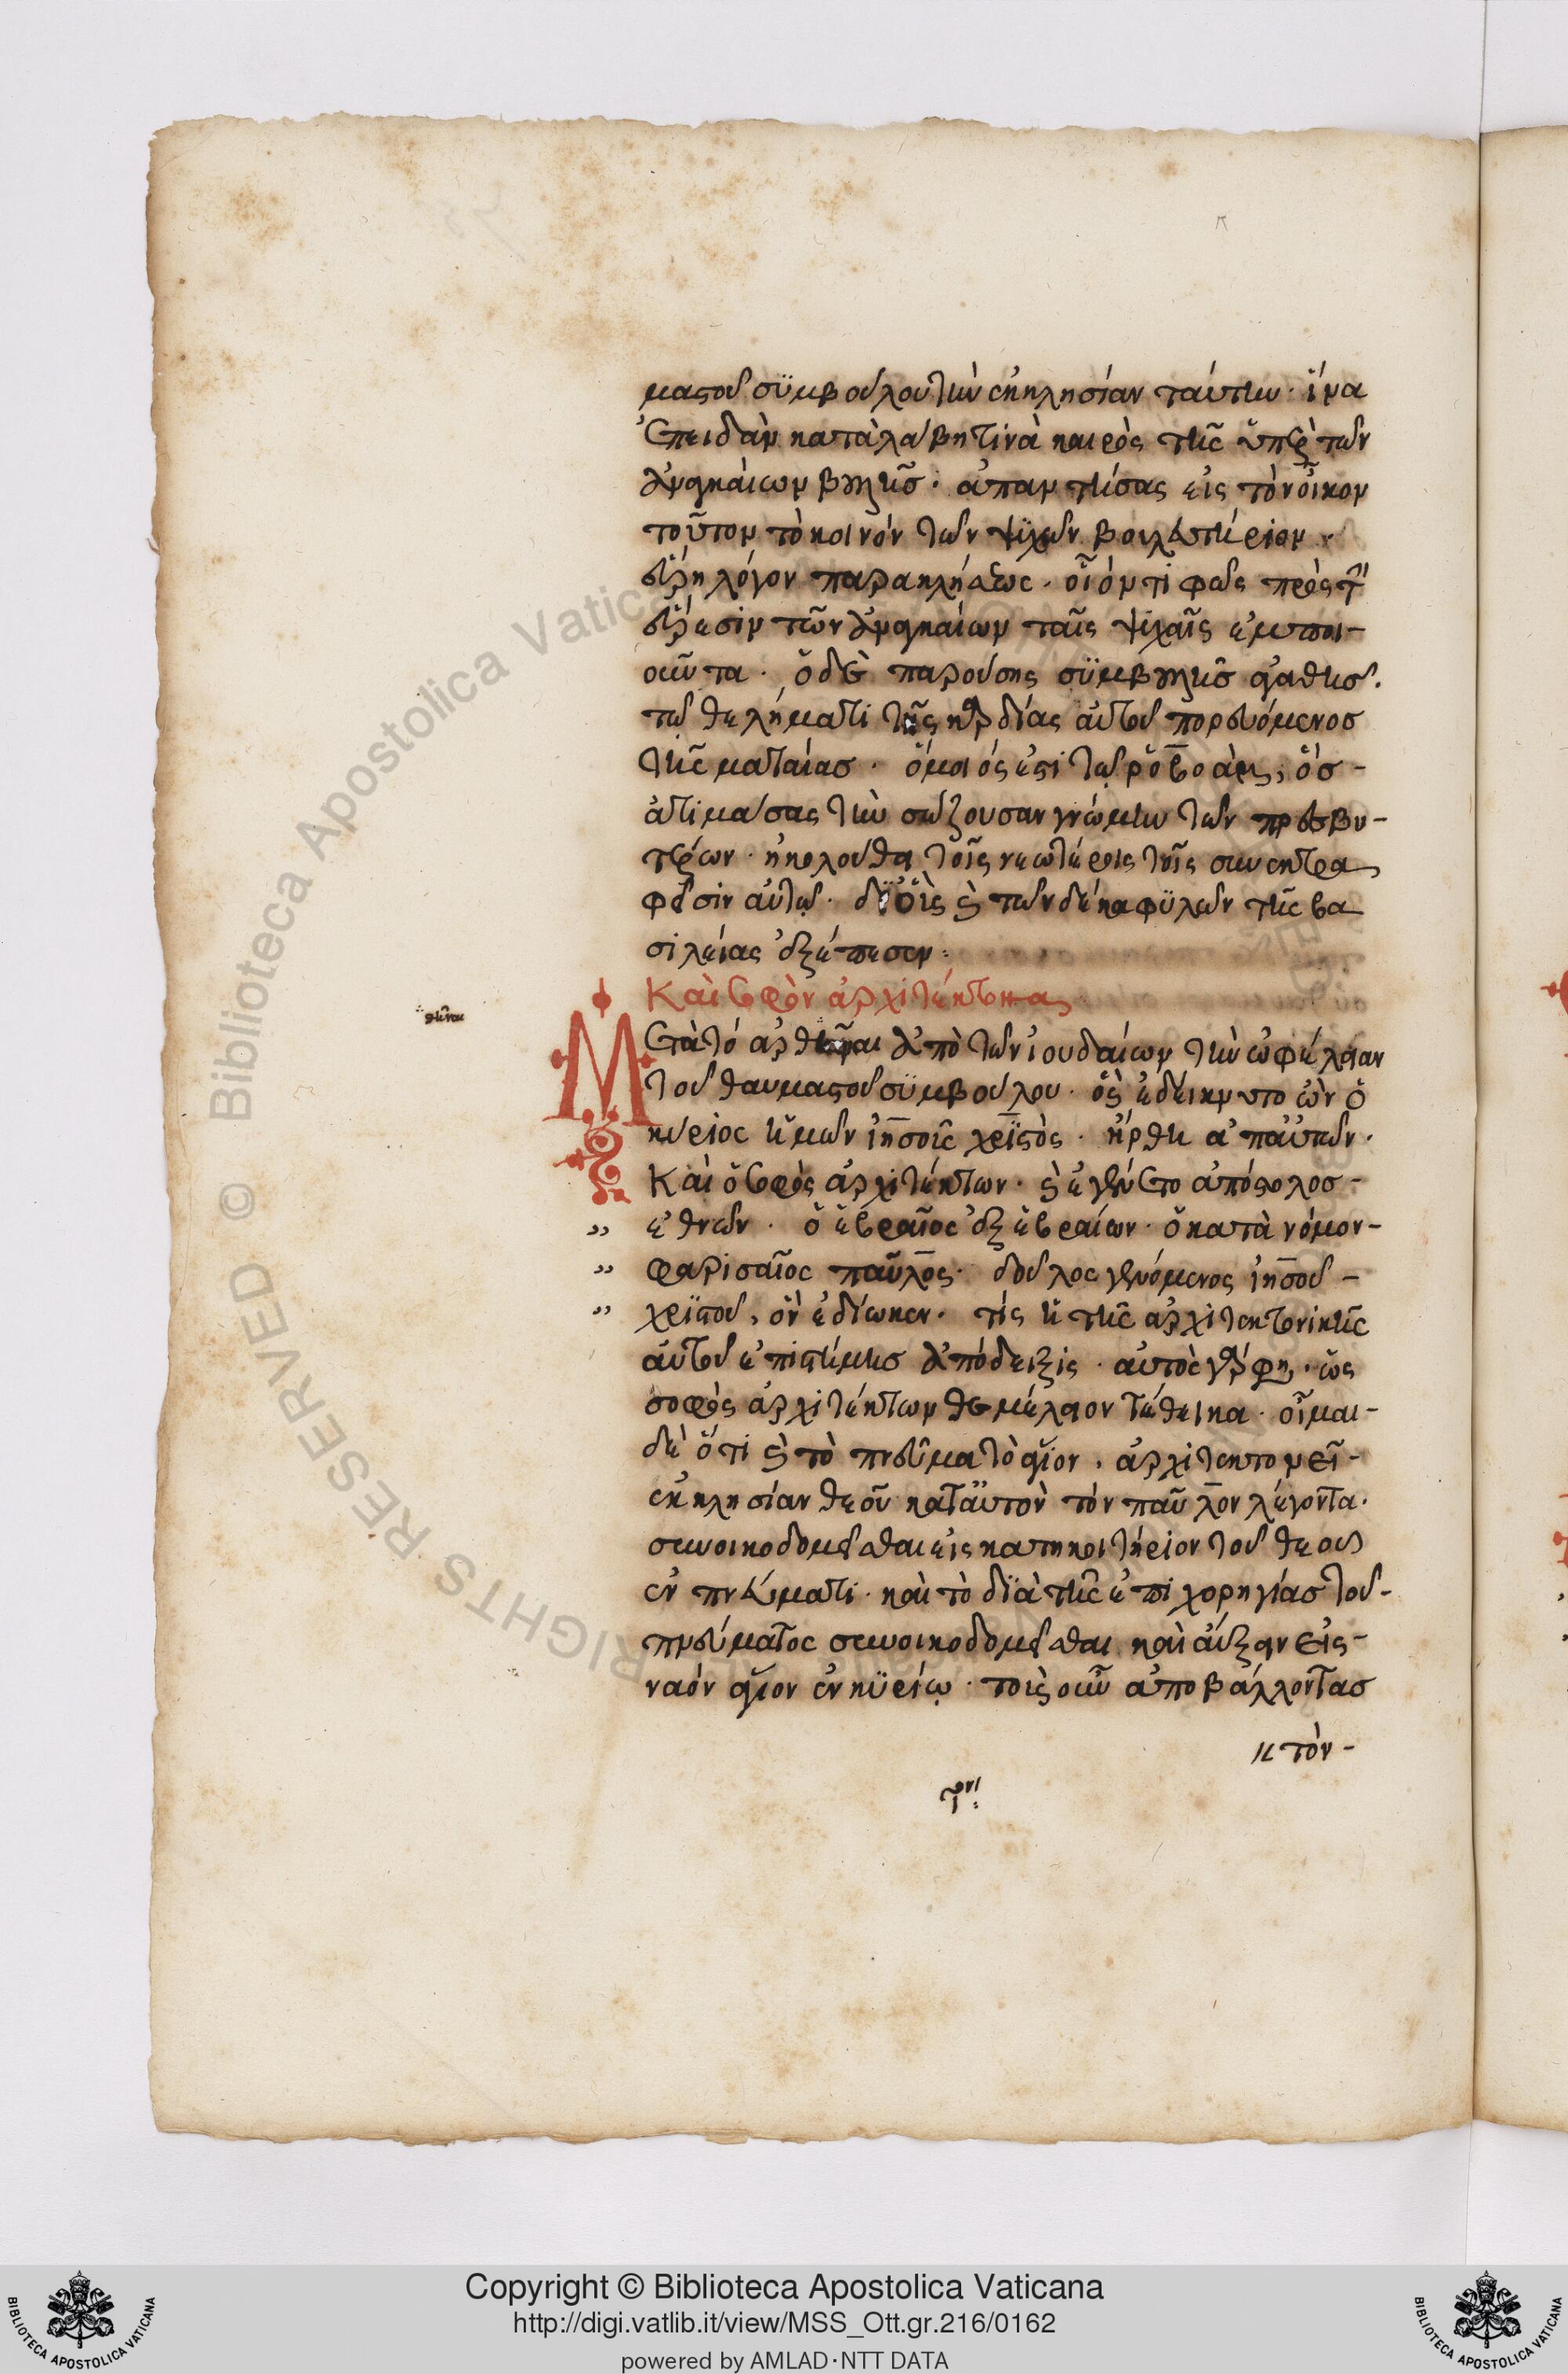 μαστοῦ συμβούλου τὴν ἐκκλησίαν ταύτην· ἵνα
ἐπειδὰν καταλάβῃ τινὰ καιρὸς τῆς ὑπὲρ τῶν
ἀναγκαίων βουλῆς· ἀπαντήσας εἰς τὸν οἶκον
τοῦτον τὸ κοινὸν τῶν ψυχῶν βουλευτήριον
εὕρῃ λόγον παρακλήσεως· οἷόν τι φῶς πρὸς τὴν
εὕρεσιν τῶν ἀναγκαίων ταῖς ψυχαῖς ἐμποι-
οῦντα· ὁ δὲ παρούσης συμβουλῆς ἀγαθῆς·
τῷ θελήματι τῆς καρδίας αὐτοῦ πορευόμενος
τῆς ματαίας· ὅμοιός ἐστι τῷ ῥοβοάμ, ὃς
ἀτιμάσας τὴν σώζουσαν γνώμην τῶν πρεσβυ-
τέρων· ἠκολούθει τοῖς νεωτέροις τοῖς συνεκτρα
φεῖσιν αὐτῷ· δι' οἷς καὶ τῶν δέκα φυλῶν τῆς βα
σιλείας ἐξέπεσεν:
Καὶ σοφὸν ἀρχιτέκτονα
Μετὰ τὸ ἀρθῆναι ἀπὸ τῶν ἰουδαίων τὴν ὠφέλειαν
τοῦ θαυμαστοῦ συμβούλου· ὃς ἐδείκνυτο ὢν ὁ
κύριος ἡμῶν ἰησοῦς χριστὸς· ἤρθη ἀπ' αὐτῶν·
Καὶ ὁ σοφὸς ἀρχιτέκτων· καὶ ἐγένετο ἀπόστολος
ἐθνῶν· ὁ ἑβραῖος ἐξ ἑβραίων· ὁ κατὰ νόμον
φαρισαῖος παῦλος· δοῦλος γενόμενος ἰησοῦ
χριστοῦ, ὃν ἐδίωκεν· τίς ἡ τῆς ἀρχιτεκτονικῆς
αὐτοῦ ἐπιστήμης ἀπόδειξις· αὐτὸς γράφει· ὡς
σοφὸς ἀρχιτέκτων θεμέλιον τέθεικα· οἶμαι
δὲ ὅτι καὶ τὸ πνεῦμα τὸ ἅγιον, ἀρχιτεκτονεῖ
ἐκκλησίαν θεοῦ κατ' αὐτὸν τὸν παῦλον λέγοντα·
συνοικοδομεῖσθαι εἰς κατοικητήριον τοῦ θεοῦ
ἐν πνεύματι· καὶ τὸ διὰ τῆς ἐπιχορηγίας τοῦ
πνεύματος συνοικοδομεῖσθαι καὶ αὔξειν εἰς
ναὸν ἅγιον ἐν κυρίῳ· τοὺς οὖν ἀποβάλλοντας
ἢ τὸν
θῆναι